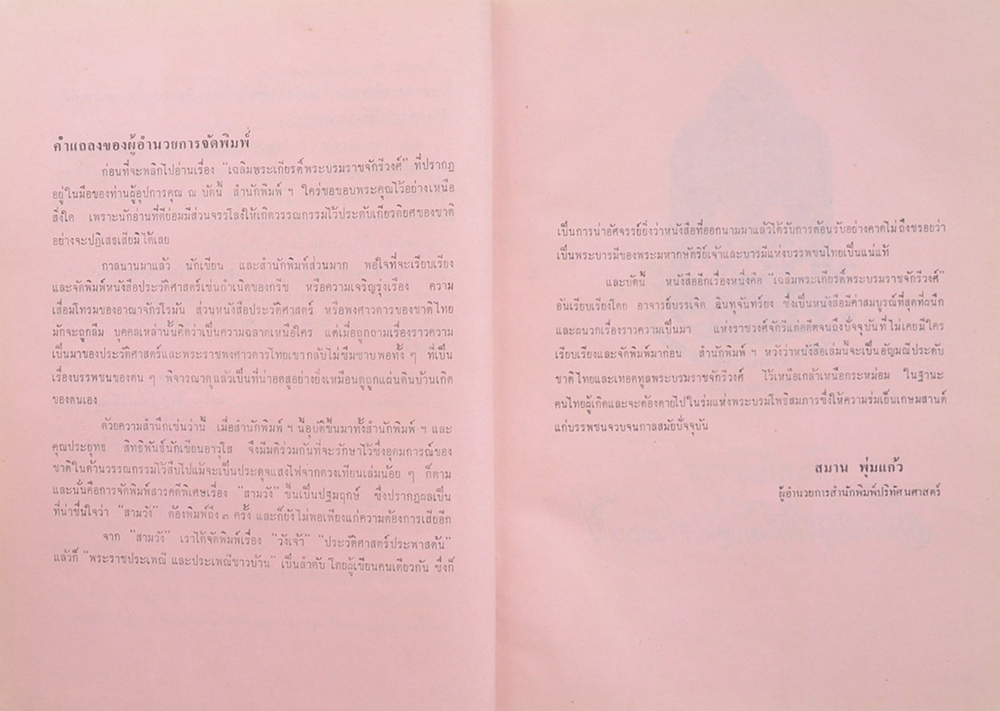 คำแถลงของผู้อำนวยการจัดพิมพ์
ก่อนที่จะพลิกไปอ่านเรื่อง "เฉลิมพระเกียรติ์พระบรมราชจักรีวงศ์" ที่ปรากฏ
อยู่ในมือของท่านผู้อุปการคุณ ณ บัดนี้ สำนักพิมพ์ ฯ ใคร่ขอขอบพระคุณไว้อย่างเหนือ
สิ่งใด เพราะนักอ่านที่ดีย่อมมีส่วนจรรโลงให้เกิดวรรณกรรมไว้ประดับเกียรติยศของชาติ
อย่างจะปฏิเสธเสียมิได้เลย
กาลนานมาแล้ว นักเขียน และสำนักพิมพ์ส่วนมาก พอใจที่จะเรียบเรียง
และจัดพิมพ์หนังสือประวัติศาสตร์เช่นกำเนิดของกรีซ หรือความเจริญรุ่งเรือง ความ
เสื่อมโทรมของอาณาจักรโรมัน ส่วนหนังสือประวัติศาสตร์ หรือพงศาวดารของชาติไทย
มักจะถูกลืม บุคคลเหล่านั้นคิดว่าเป็นความฉลาดเหนือใคร แต่เมื่อถูกถามเรื่องราวความ
เป็นมาของประวัติศาสตร์และพระราชพงศาวดารไทยเขากลับไม่ซึมซาบพอทั้ง ๆ ที่เป็น
เรื่องบรรพชนของตน ๆ พิจารณาดูแล้วเป็นที่น่าอดสูอย่างยิ่งเหมือนดูถูกแผ่นดินบ้านเกิด
ของตนเอง
ด้วยความสำนึกเช่นว่านี้ เมื่อสำนักพิมพ์ ฯ นี้อุบัติขึ้นมาทั้งสำนักพิมพ์ ฯ และ
คุณประยุทธ สิทธิพันธ์นักเขียนอาวุโส จึงมีมติร่วมกันที่จะรักษาไว้ซึ่งอุดมการณ์ของ
ชาติในด้านวรรณกรรมไว้สืบไปแม้จะเป็นประดุจแสงไฟจากดวงเทียนเล่มน้อย ๆ ก็ตาม
และนั่นคือการจัดพิมพ์สารคดีพิเศษเรื่อง "สามวัง" ขึ้นเป็นปฐมฤกษ์ ซึ่งปรากฏผลเป็น
ที่น่าชื่นใจว่า "สามวัง" ต้องพิมพ์ถึง ๓ ครั้ง และก็ยังไม่พอเพียงแก่ความต้องการเสียอีก
จาก "สามวัง" เราได้จัดพิมพ์เรื่อง "วังเจ้า" "ประวัติศาสตร์ประพาสต้น"
แล้วก็ "พระราชประเพณี และประเพณีชาวบ้าน" เป็นลำดับ โดยผู้เขียนคนเดียวกัน ซึ่งก็
เป็นการน่าอัศจรรย์ยิ่งว่าหนังสือที่ออกนามมาแล้วได้รับการต้อนรับอย่างคาดไม่ถึงชรอยว่า
เป็นพระบารมีของพระมหากษัตริย์เจ้าและบารมีแห่งบรรพชนไทยเป็นแน่แท้
และบัดนี้ หนังสืออีกเรื่องหนึ่งคือ "เฉลิมพระเกียรติ์พระบรมราชจักรีวงศ์"
อันเรียบเรียงโดย อาจารย์บรรเจิด อินทุจันทร์ยง ซึ่งเป็นหนังสือมีค่าสมบูรณ์ที่สุดที่ผนึก
และผนวกเรื่องราวความเป็นมา แห่งราชวงศ์จักรีแต่อดีตจนถึงปัจจุบันที่ไม่เคยมีใคร
เรียบเรียงและจัดพิมพ์มาก่อน สำนักพิมพ์ ฯ หวังว่าหนังสือเล่มนี้จะเป็นอัญมณีประดับ
ชาติไทยและเทอดทูลพระบรมราชจักรีวงศ์ ไว้เหนือเกล้าเหนือกระหม่อม ในฐานะ
คนไทยผู้เกิดและจะต้องตายไปในร่มแห่งพระบรมโพธิสมภารซึ่งให้ความร่มเย็นเกษมสานต์
แก่บรรพชนจวบจนกาลสมัยปัจจุบัน
สมาน พุ่มแก้ว
ผู้อำนวยการสำนักพิมพ์ปริทัศนศาสตร์